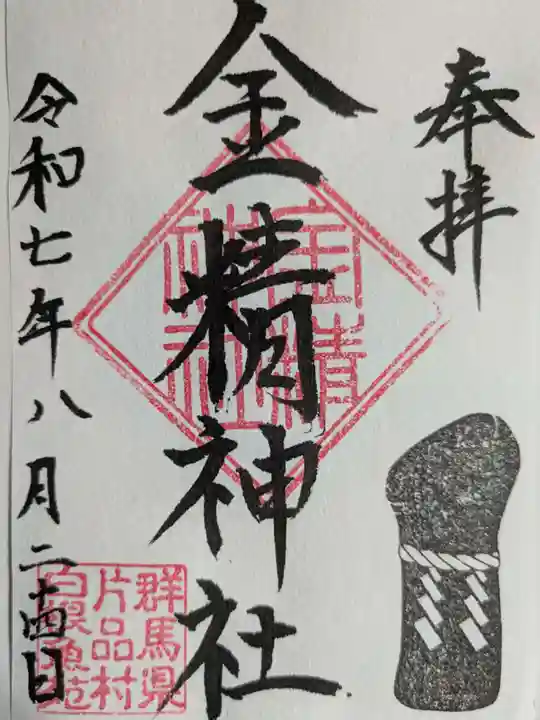 奉拝
金精神社
金精
神社
令和七年八月二十四日
群馬県
片品村